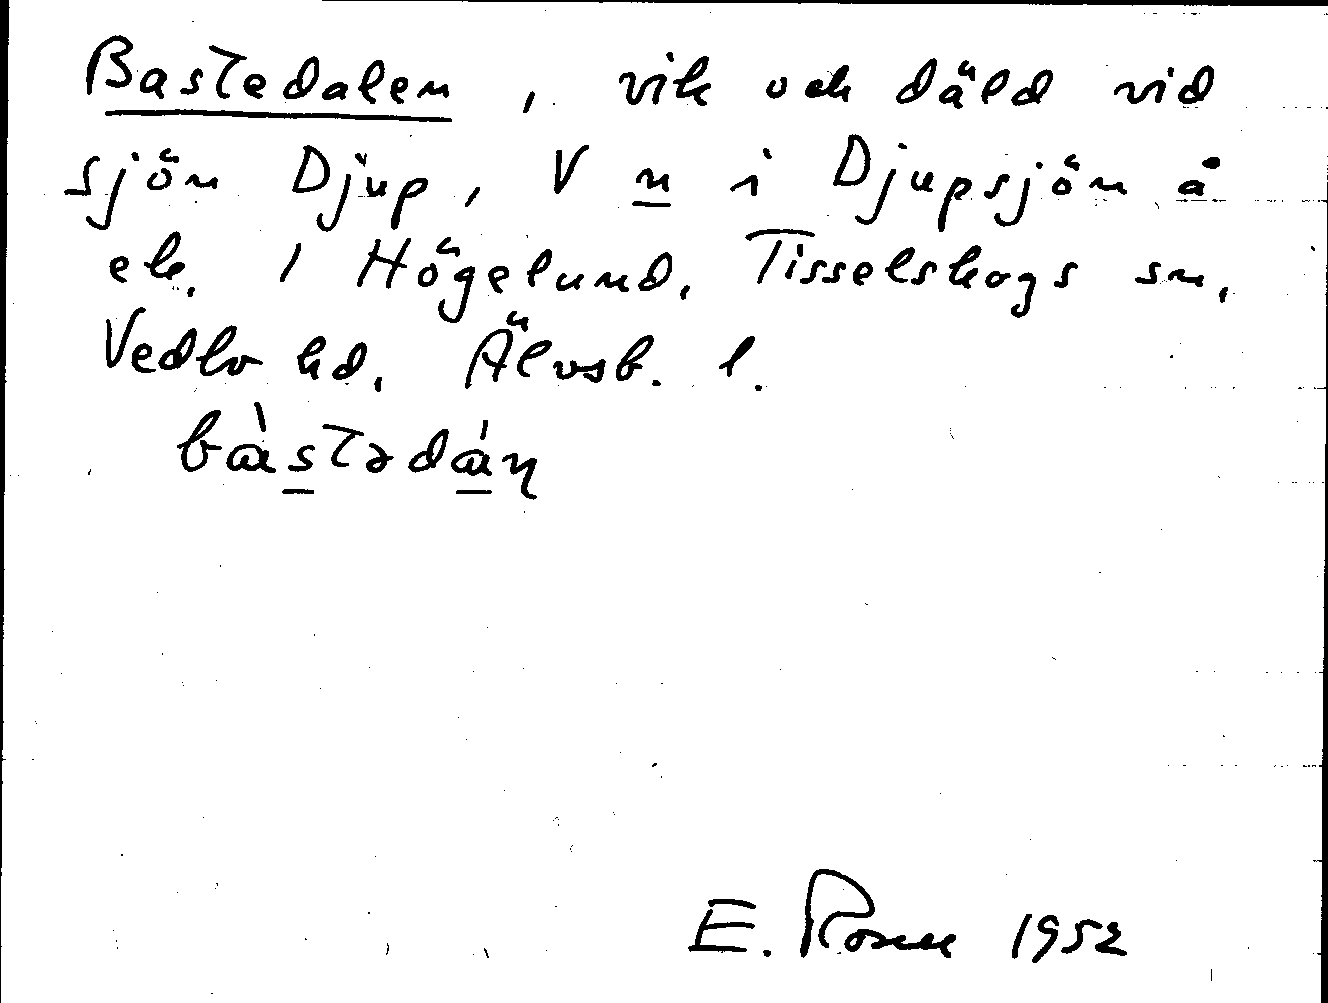 Bastedalen, vik och däld vid
sjön Djup, V n i Djupsjön å
ek. 1 Högelund, Tisselskogs sn,
Vedbo hd, Älvsb. l.
bàstədáņ
E. Rosell 1952